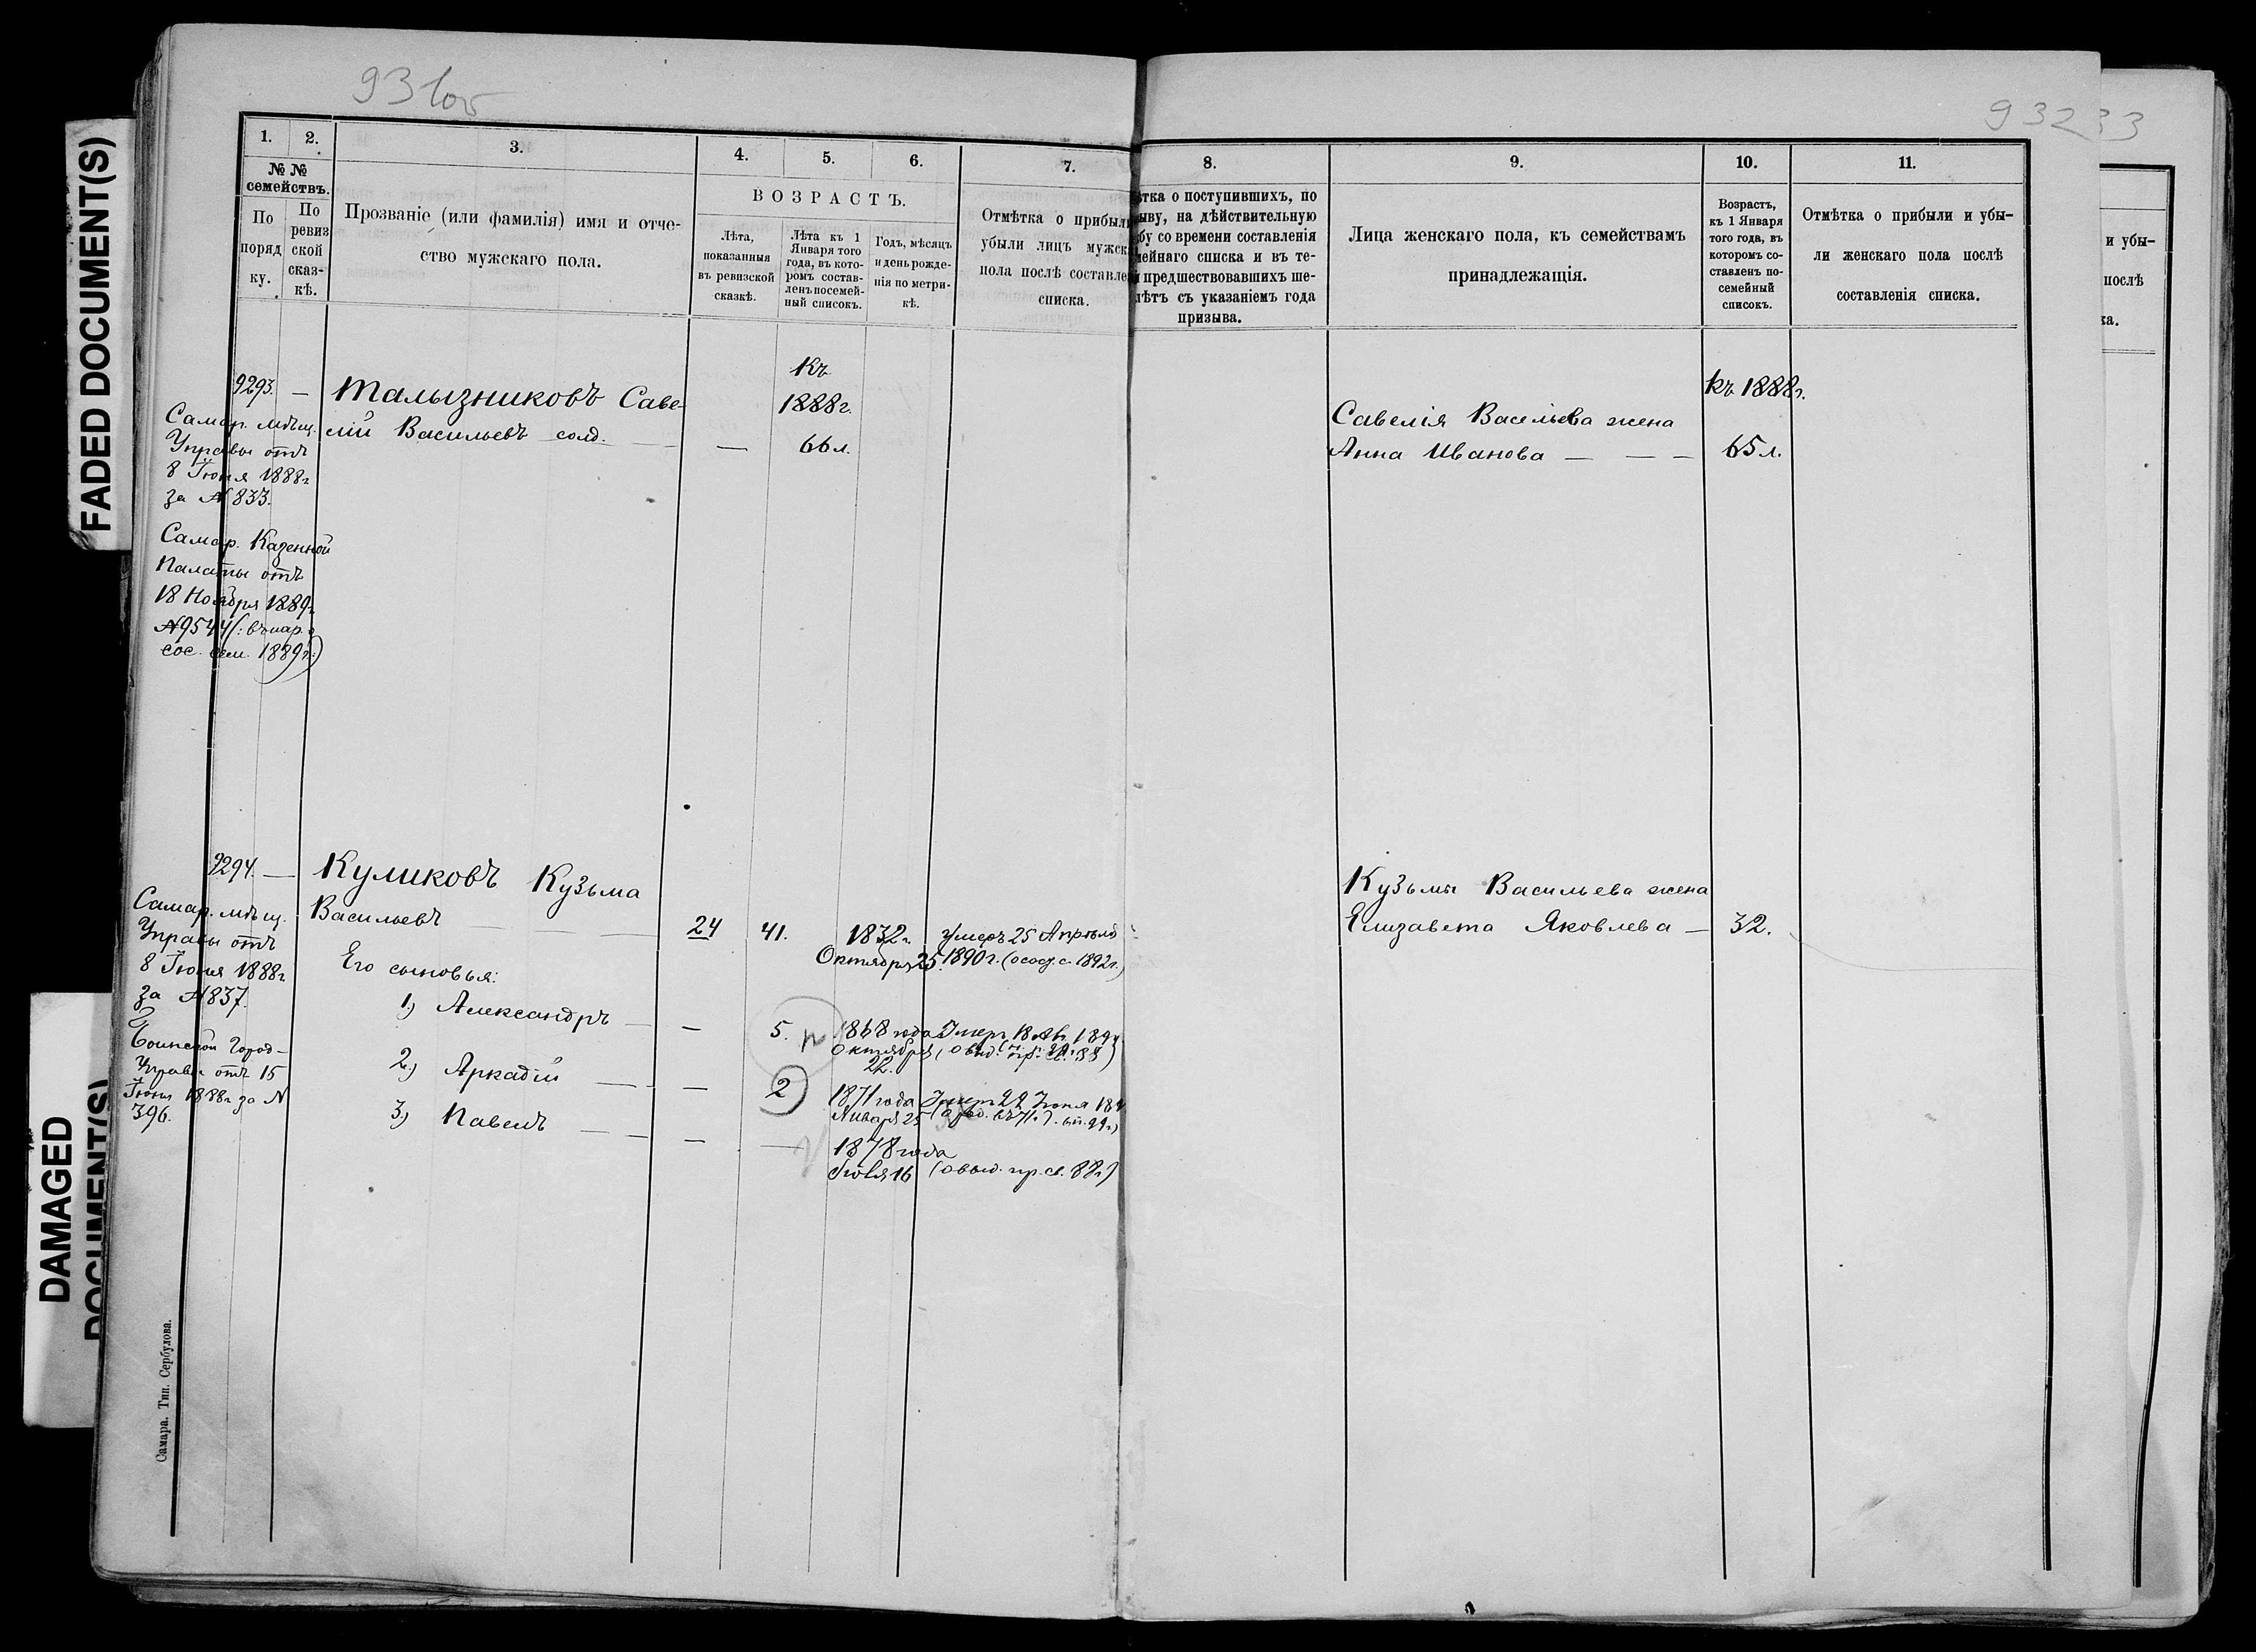 93 об
93233
FADED DOCUMENT(S)
DAMAGED
DOCUMENT(S)
1. 2. 3. 4. 5. 6. 7.
№ №
семействъ.
По
поряд
ку.
По
ревиз
ской
сказ-
кѣ.
Прозваніе (или фамилія) имя и отче-
ство мужскаго пола.
ВОЗРАСТЪ.
Лѣта,
показанныя
въ ревизской
сказкѣ.
Лѣта къ 1
Января того
года, въ кото-
ромъ состав-
ленъ посемей-
ный списокъ.
Годъ, мѣсяцъ
и день рожде-
нія по метри-
кѣ.
Отмѣтка о прибыли
убыли лицъ мужск
пола послѣ составле
списка.
8. 9. 10. 11.
ѣтка о поступившихъ, по
ыву, на дѣйствительную
бу со времени составленія
мейнаго списка и въ те-
и предшествовавшихъ ше-
лѣтъ съ указаніемъ года
призыва.
Лица женскаго пола, къ семействамъ
принадлежащія.
Возрастъ,
къ 1 Января
того года, въ
которомъ со-
ставленъ по-
семейный
списокъ.
Отмѣтка о прибыли и убы-
ли женскаго пола послѣ
составленія списка.
и убы-
послѣ
ка.
9293. —
Самар. мѣщ.
Управы отъ
8 Іюня 1888г
за № 833.
Самар. Казенной
Палаты отъ
18 Ноября 1889г
№ 9544
сос. сем. 1889г.)
Талызниковъ Саве-
лій Васильевъ солд. — —
Къ
1888г.
66 л.
Савелія Васильева жена
Анна Иванова — — —
къ 1888г.
65 л.
9294. —
Самар. мѣщ.
Управы отъ
8 Іюня 1888г
за № 837.
Город-
Управы отъ 15
Іюня 1888г за №
396.
Куликовъ Кузьма
Васильевъ — — —
24 41. 1832г.
Октября 25.
Умеръ 25 Апрѣля
1890 г. 1892г.)
Его сыновья:
1) Александръ — — 5. 1868 года
Октября
22.
Умеръ 18
2) Аркадій — — 2 1871 года
Января 25
Умеръ 22 Іюня
3) Павелъ — — — 1878 года
Іюля 16
Кузьмы Васильева жена
Елизавета Яковлева — 32.
Самара. Тип. Сербулова.